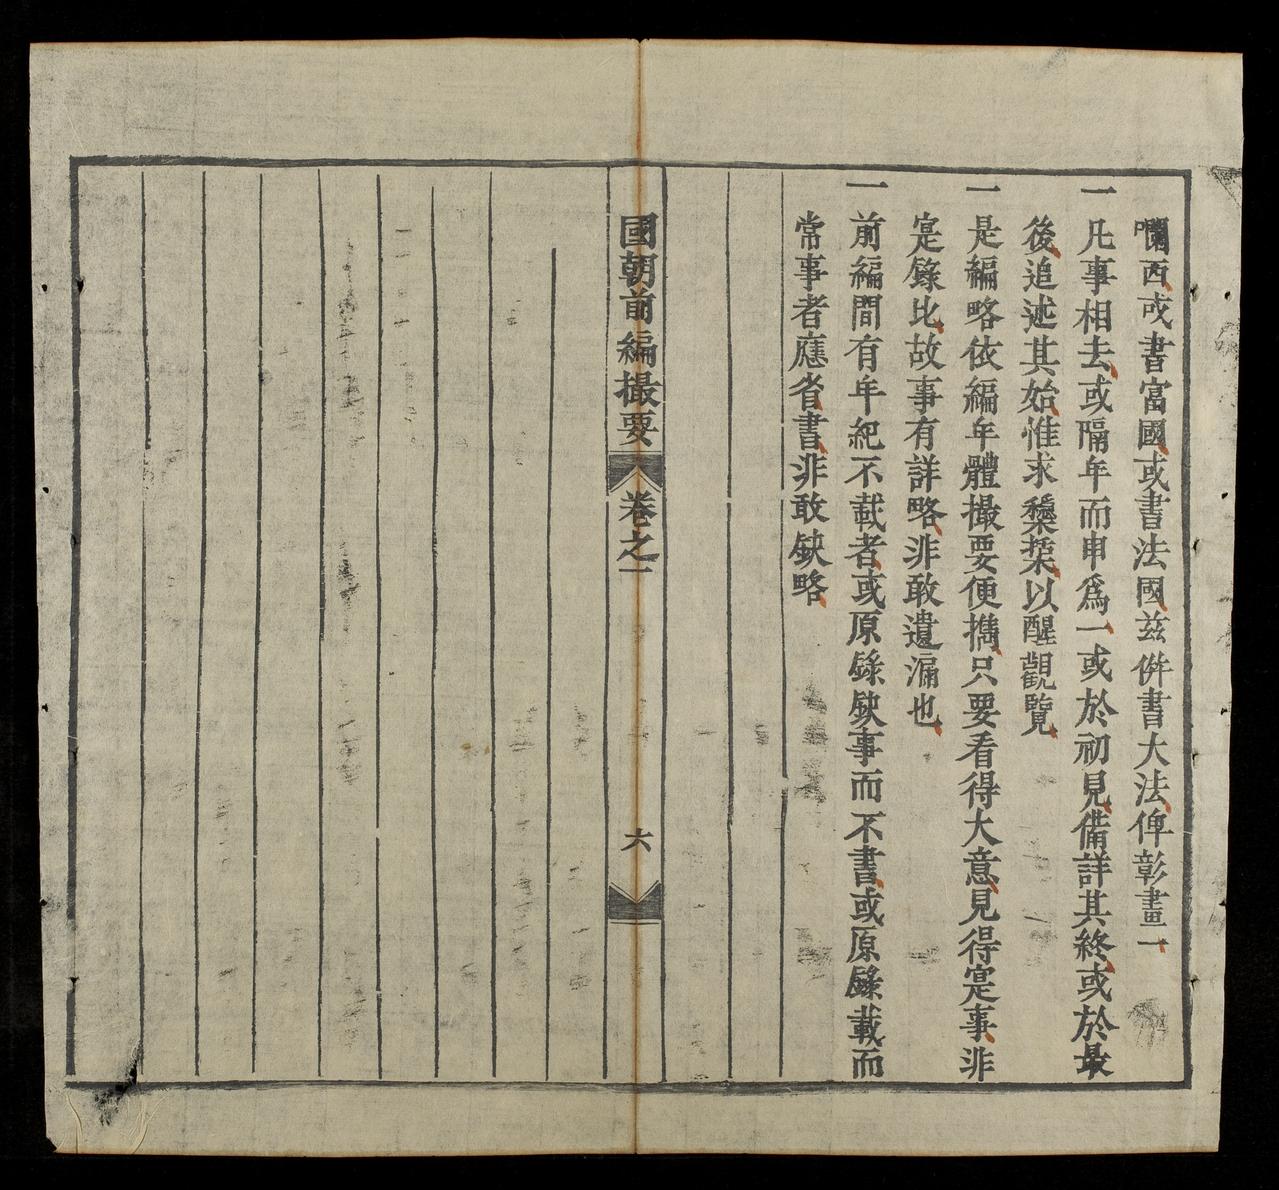 囒西或書富國或書法國茲併書大法俾彰畫一
一凡事相去或隔年而申爲一或於初見備詳其終或於最
後追述其始惟求櫽栝以醒觀覽
一是編略依編年體撮要便擕只要看得大意見得寔事非
寔錄比故事有詳略非敢遺漏也
一前編間有年紀不載者或原錄缺事而不書或原錄載而
常事者應省書非敢缺略
國朝前編撮要 卷之一 六